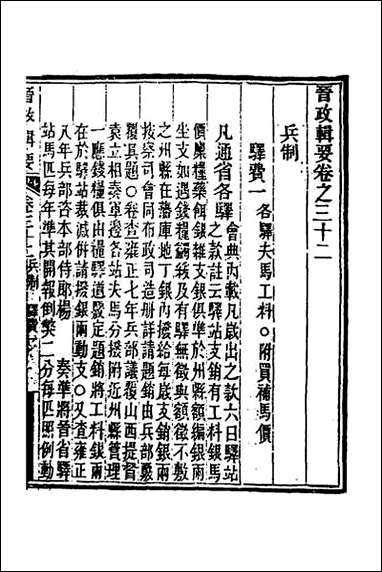 晉政輯要卷之三十二
兵制
驛費一 各驛夫馬工料○附買補馬價
凡通省各驛會典內載凡歲出之款六曰驛站
之款註云驛站支銷有工料銀馬
價廩糧藥餌銀雜支銀俱準於州縣額編銀兩
坐支如遇錢糧蠲緩及有驛無徵與額徵不敷
之州縣在藩庫地丁銀內撥給每歲支銷銀兩
按察司會同布政司造册詳請題銷由兵部覈
覆具題○卷查雍正七年兵部議覆山西提督
袁立相奏單邊各站夫馬分撥附近州縣管理
一應錢糧俱由糧驛道覈定題銷將工料銀兩
在於驛站裁減併請撥銀兩動支○又查雍正
八年兵部咨本部侍郎楊 奏準將晉省驛
站馬匹每年準其開報倒斃二分每匹照例動
晉政輯要 卷三十二兵制 驛費